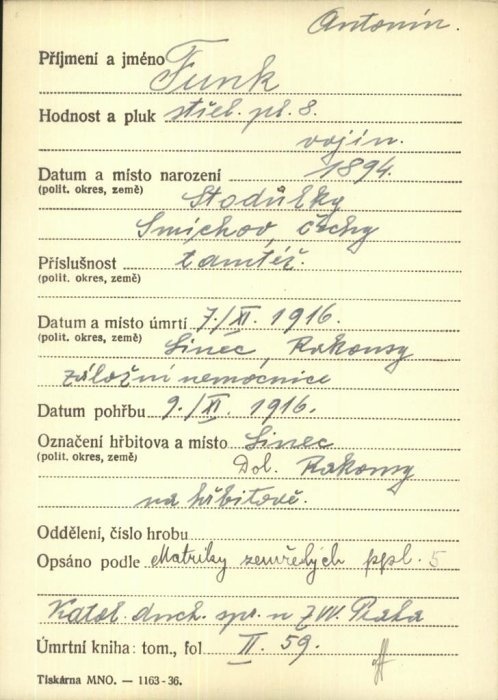 Antonín.
Příjmení a jméno Funk
Hodnost a pluk střel. pl. 8.
vojín.
Datum a místo narození 1894.
(polit. okres, země) Stodůlky
Smíchov, čechy
Příslušnost tamtéž.
(polit. okres, země)
Datum a místo úmrtí 7./XI. 1916.
(polit. okres, země) Linec, Rakousy
záložní nemocnice
Datum pohřbu 9./XI. 1916.
Označení hřbitova a místo Linec
(polit. okres, země) Dol. Rakousy
na hřbitově.
Oddělení, číslo hrobu
Opsáno podle Matriky zemřelých ppl. 5
Katol. duch. spr. u ZVV. Praha
Úmrtní kniha: tom., fol II. 59.
Tiskárna MNO. — 1163-36.